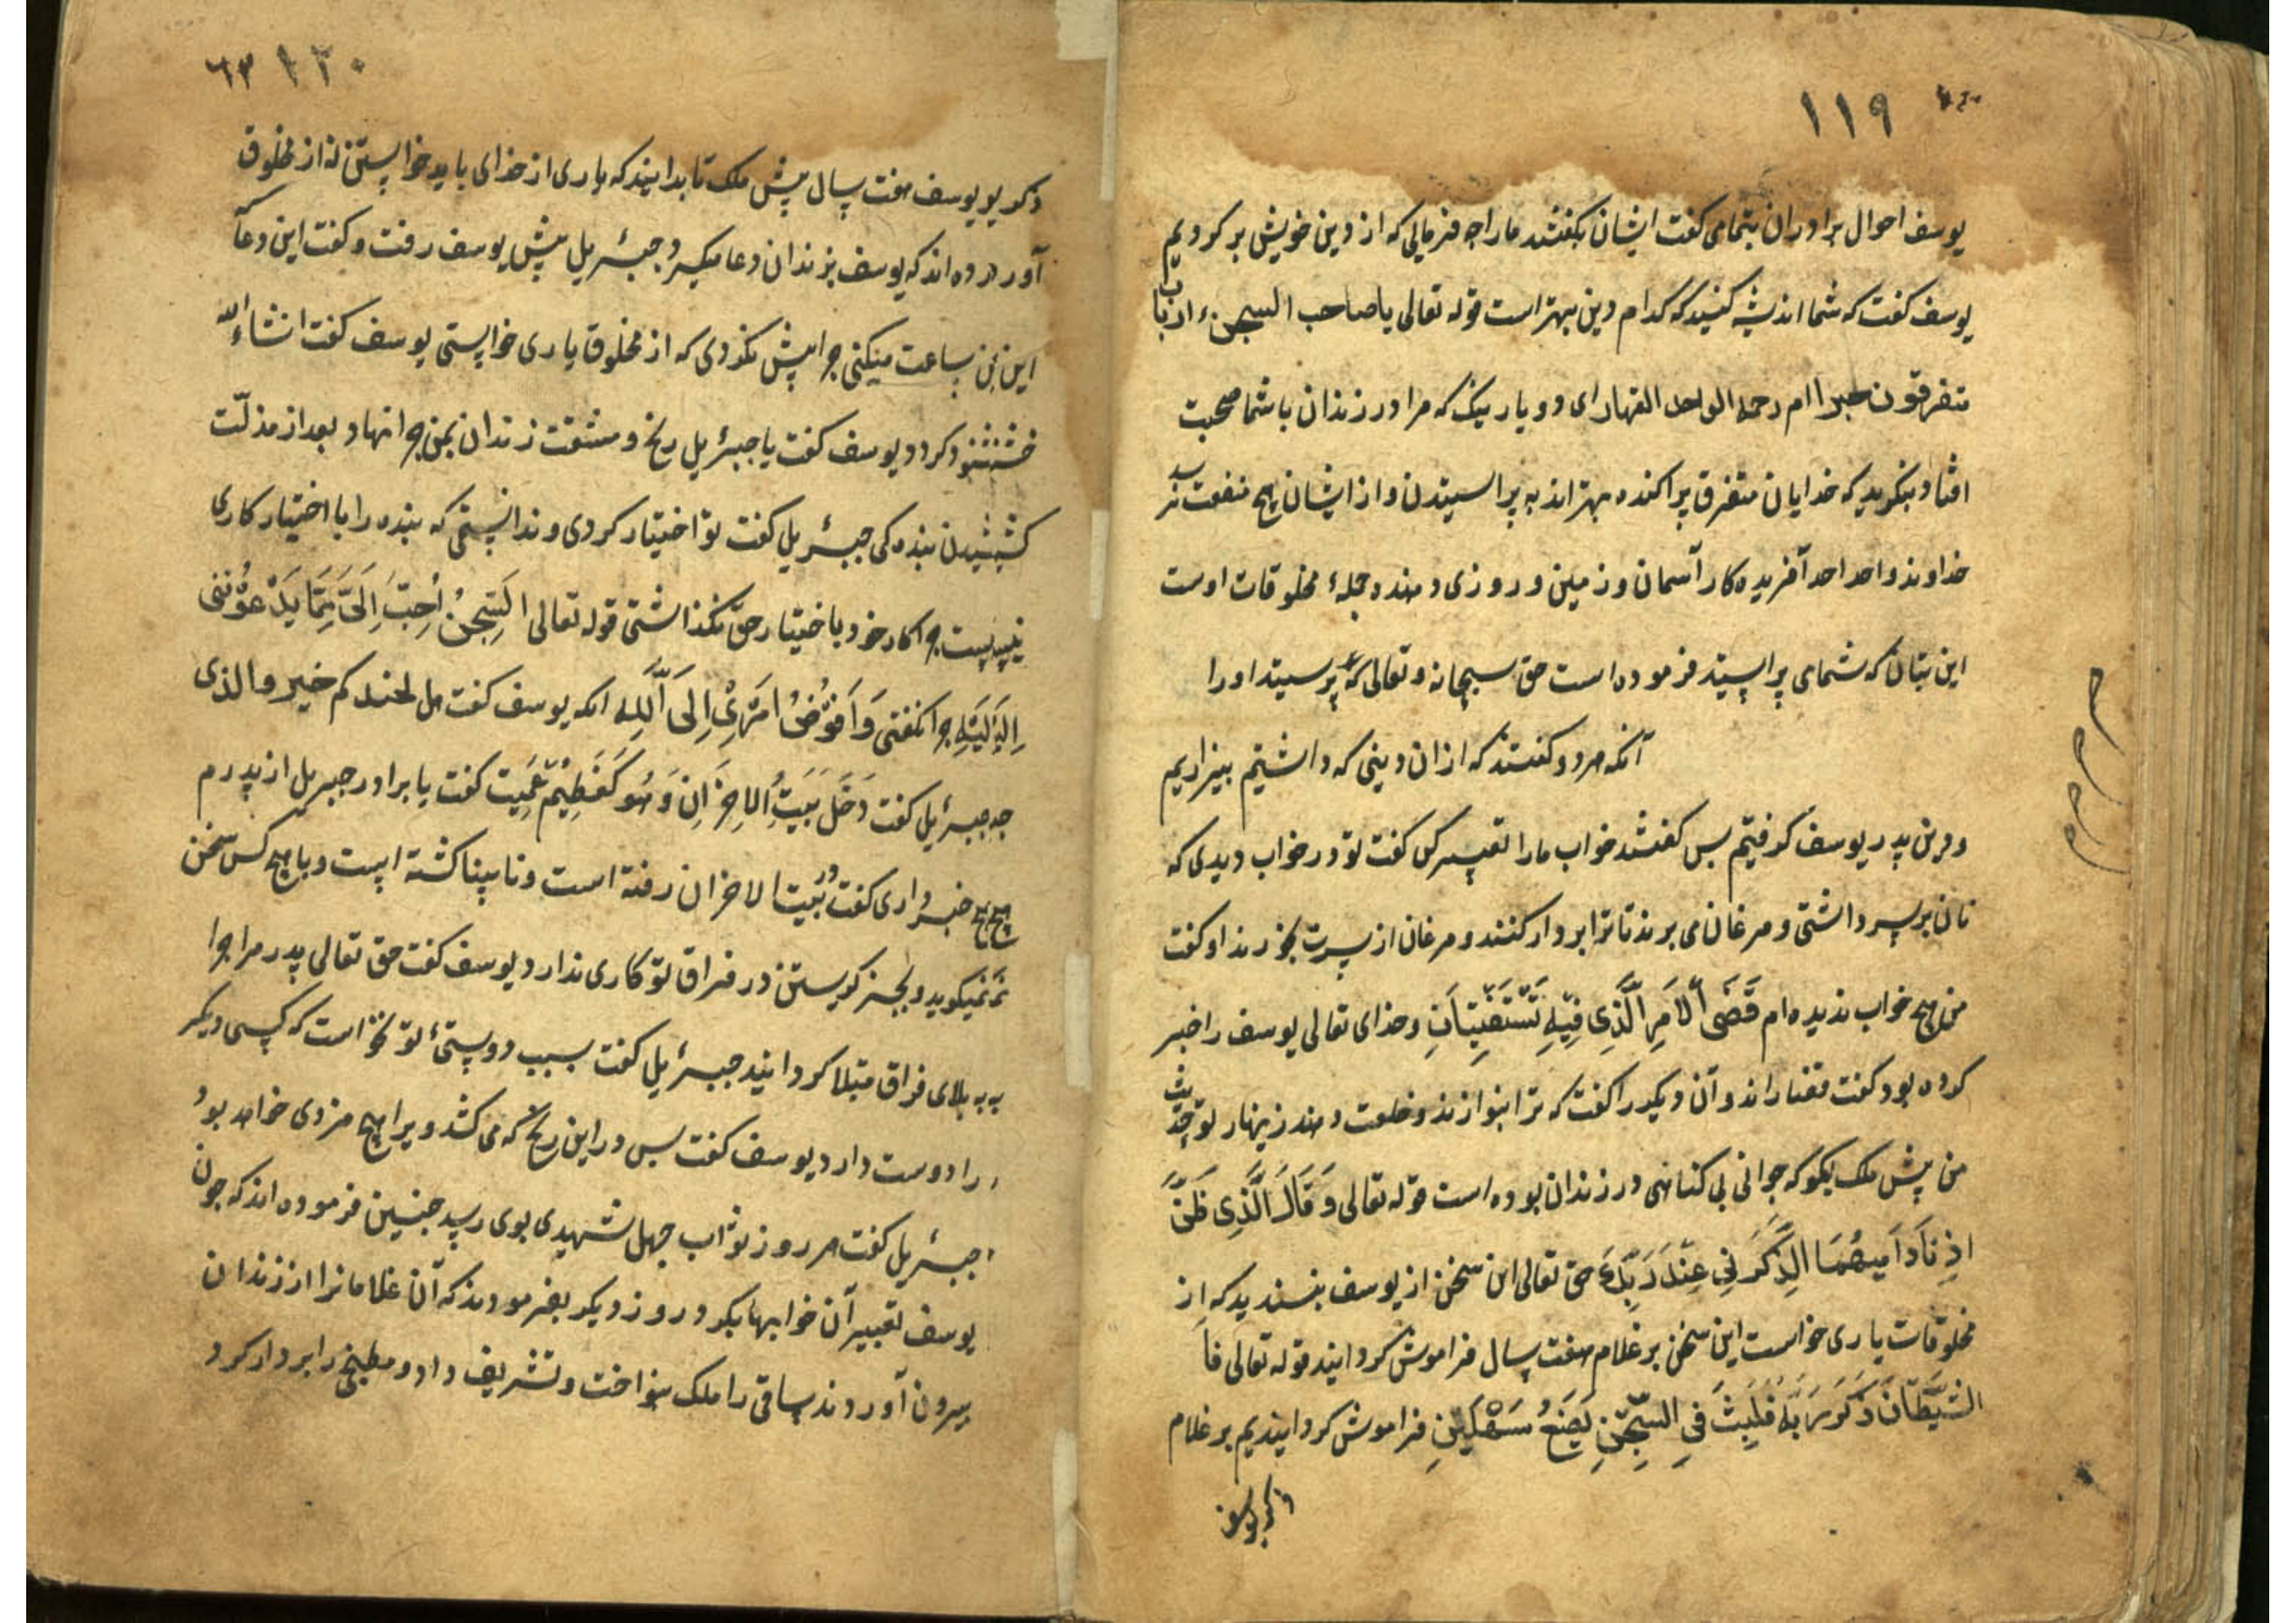 ١١٩
یوسف احوال برادران بتمامی کفت ایشان بکفتند مارا چه فرمائی که از دین خویش بر کردیم
یوسف کفت که شما اندیشه کنید که کدام دین بهتر است قوله تعالی یا صاحب السجن ء ارباب
متفرقون خیر ام الواحد القهار ای دو یار نیک که مرا در زندان با شما صحبت
افتاد بنکرید که خدایان متفرق پراکنده بهتراند به پراسیتدن و از ایشان هیچ منفعت نرسد
خداوند واحد احد آفریده کار آسمان و زمین و روزی دهنده جملهٔ مخلوقات اوست
این بتان که شمای پراسیتد فرموده است حق سبحانه و تعالی که پرسیتد اورا
آنکه هردو کفتند که ازان دینی که داشتیم بیزاریم
و دین پدر یوسف کرفتیم بس کفتند خواب مارا تعبیر کن کفت تو در خواب دیدی که
نان بر سر داشتی و مرغان می بردند تا ترا بر دار کنند و مرغان از سرت بخورند او کفت
من هیچ خواب ندیده ام قَضَی اْلاَمرِ الَّذِی فِیْهِ تَسْتَفْتِیَانِ و خدای تعالی یوسف را خبر
کرده بود کفت قضا راند و آن دیکر را کفت که ترا بنوازند و خلعت دهند زینهار تو حدیث
من پیش ملک بکو که جوانی بی کناهی در زندان بوده است قوله تعالی وَ قَالَ الَّذِی ظَنَّ
اذکرنی عِنْدَ رَبِّکَ حق تعالی این سخن از یوسف بنسندید که از
مخلوقات یاری خواست این سخن بر غلام هفت سال فراموش کردانید قوله تعالی فا
الشَّیْطَانَ ذَکَرَ رَبَّهٗ فَلَبِثَ فِی السِّجْنِ بَضِعُ سَنِیْنِ فراموش کردانیدیم بر غلام
ذکر یوسف
٦٣ ١٢٠
ذکر یو یوسف هفت سال پیش ملک تا بدانید که یاری از خدای باید خواستن نه از مخلوق
آورده اند که یوسف بزندان دعا میکرد جبرئیل پیش یوسف رفت و کفت این دعا که
این ساعت میکنی چرا پیش نکردی که از مخلوق یاری خواستی یوسف کفت انشاءالله
خشنود کردد یوسف کفت یا جبرئیل رنج و مشقت زندان بمن چرا نهاد بعد از مذلت
کشیدن بنده کی جبرئیل کفت تو اختیار کردی و ندانستی که بنده را با اختیار کاری
نیست چرا کار خود باختیار حق نکذاشتی قوله تعالی السِّجْنُ اَحِبُّ اِلَیَّ مِمَّا یَدْعُوْنَنی
اِلَیْهِ چرا نکفتی وَ اُفَوِّضُ اَمْرِیْ اِلَی اللّٰهِ انکه یوسف کفت هل عندکم خبر والدی
جه جبرئیل کفت دَخَلَ بَیْتُ الاحزَانِ وَ هُوَ کَظِیْمٌ کفت یا برادر جبرئیل از پدرم
هیچ خبر داری کفت در بیت الاحزان رفته است و نابینا کشته است و با هیچ کس سخن
نمیکوید و بجز کریستن در فراق تو کاری ندارد یوسف کفت حق تعالی پدر مرا چرا
به بلای فراق مبتلا کردانید جبرئیل کفت بسبب دوستیٔ تو نخواست که کسی دیکر
را دوست دارد یوسف کفت بس در این رنج که می کشد ویرا هیچ مزدی خواهد بود
جبرئیل کفت هر روز ثواب جهل شهیدی بوی رسد جنین فرموده اند که جون
یوسف تعبیر آن خوابها بکرد روز دیکر بفرمودند که آن غلامانرا از زندان
بیرون آوردند ساقی را ملک بنواخت و تشریف داد و مطبخی را بر دار کرد